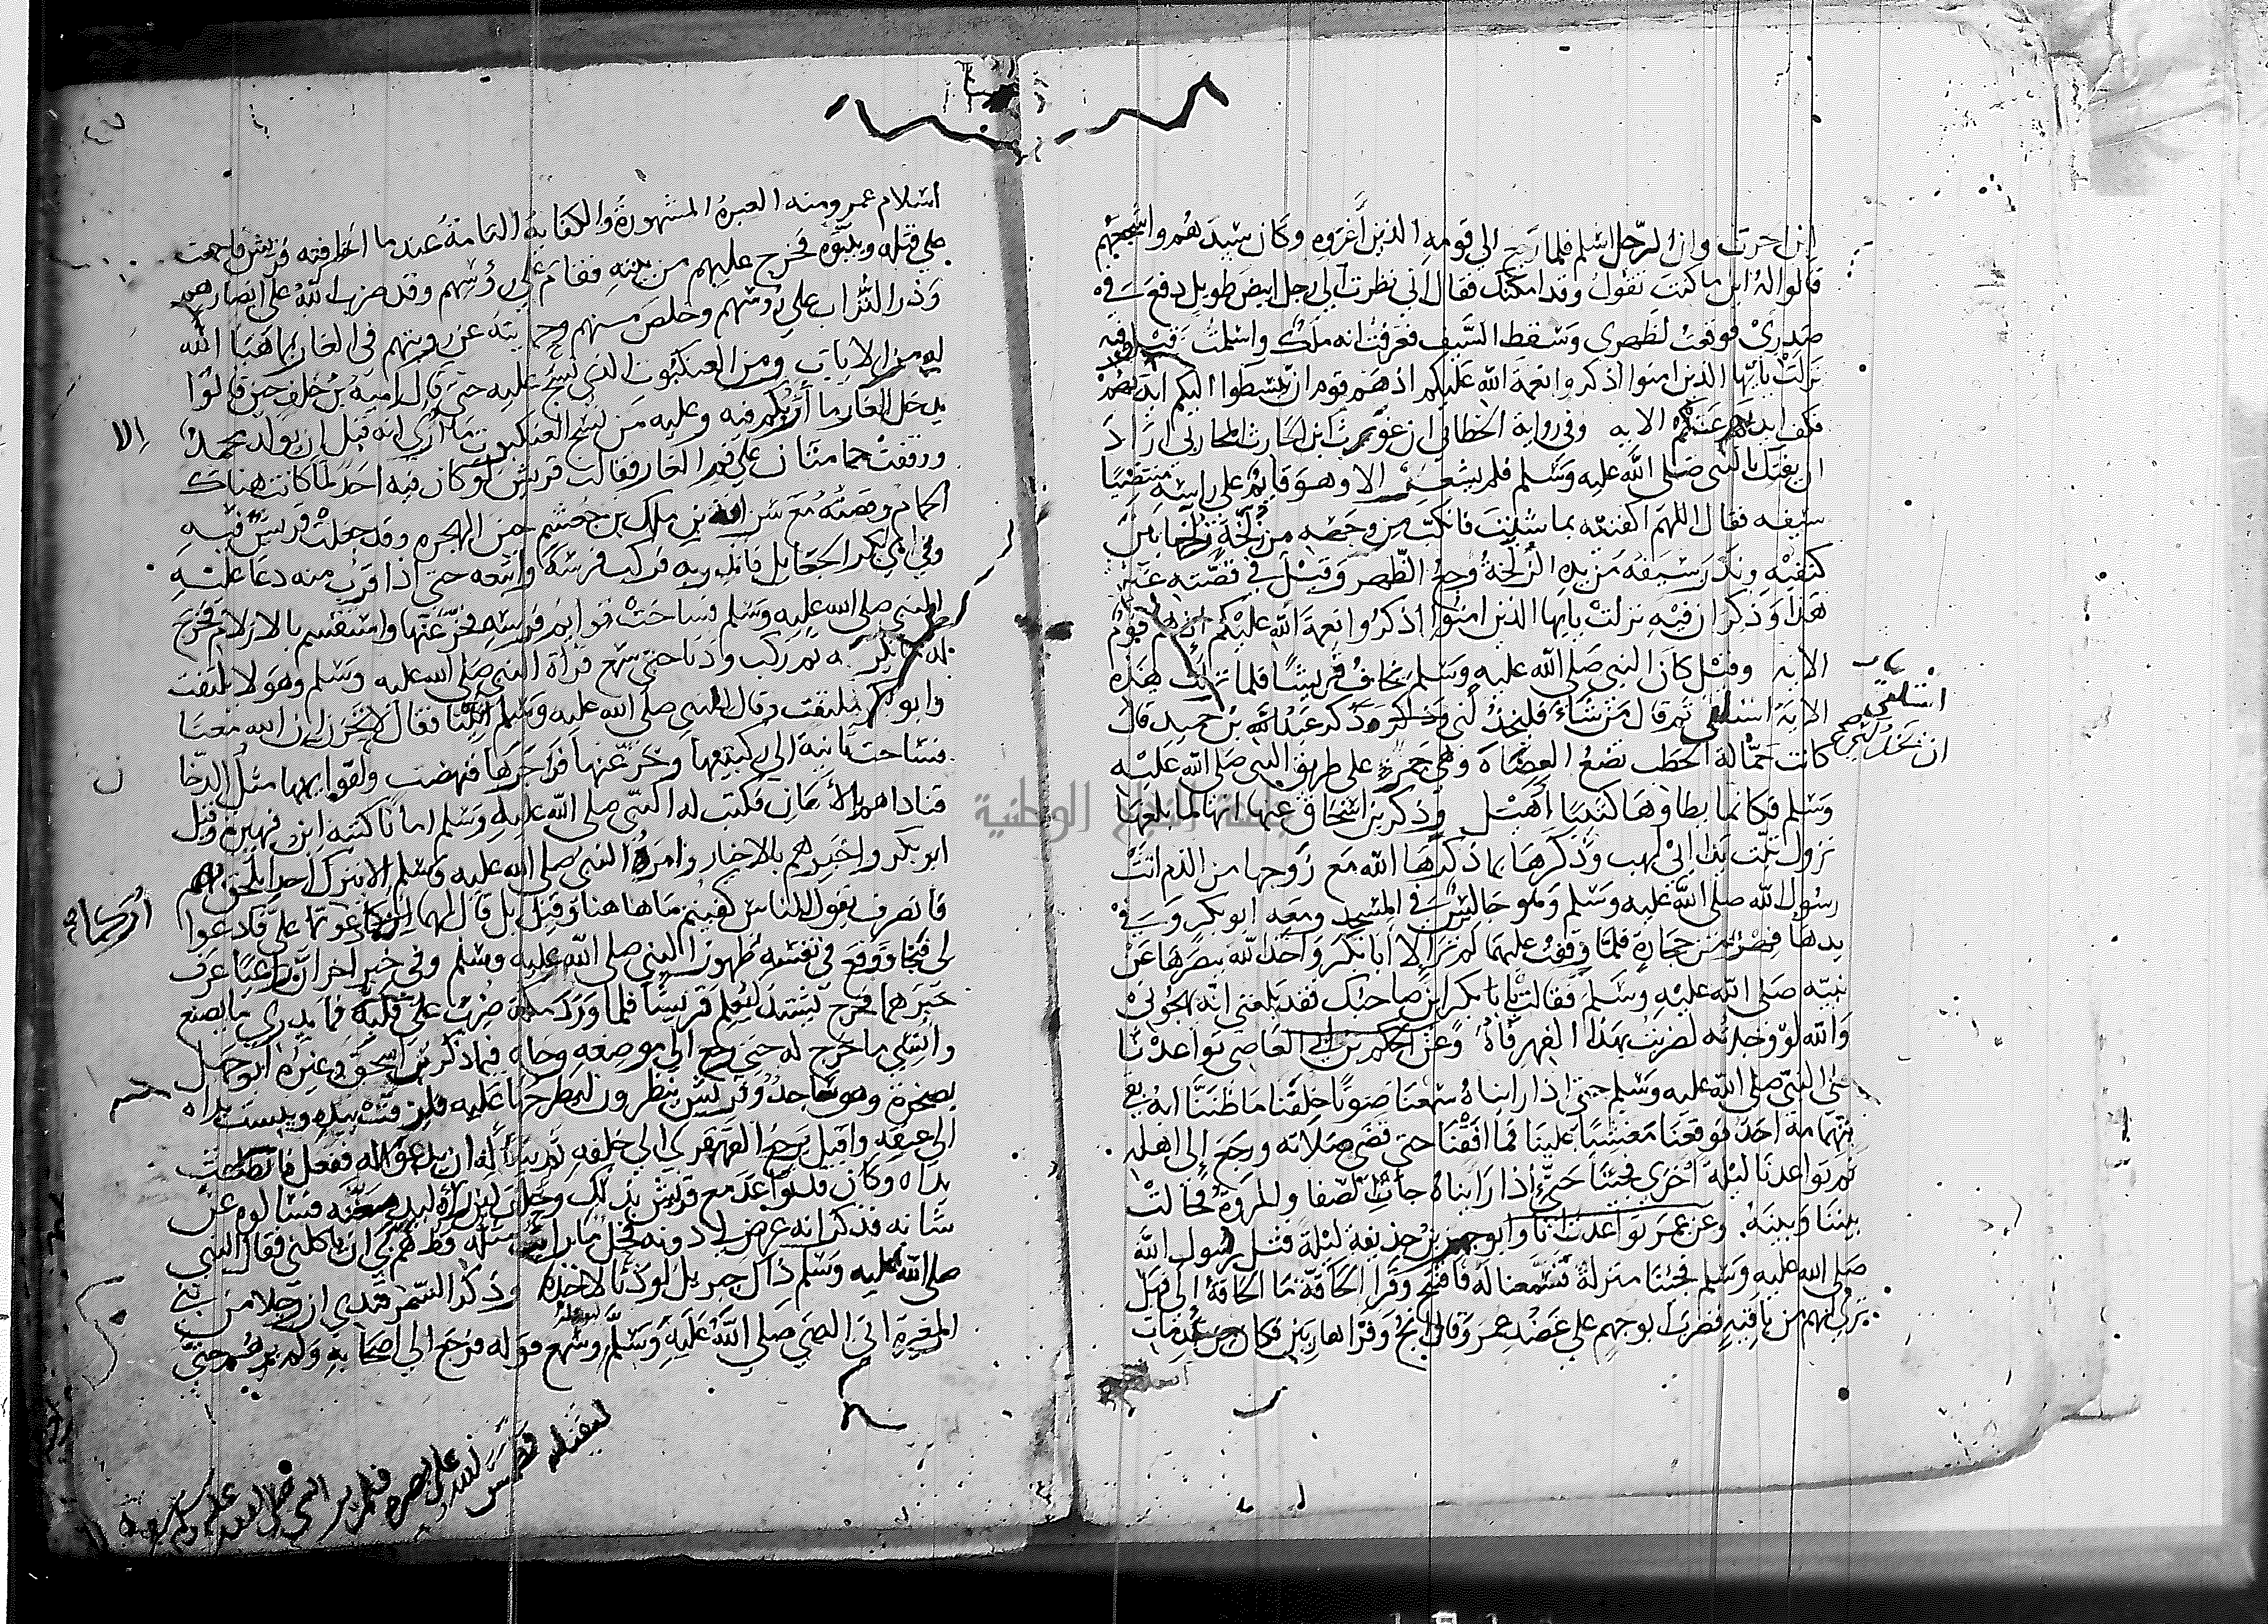 ابن الحرث وان الرجل اسلم فلما رجع الي قومه الذين أغروه وكان سيدهم واشجعهم
قالوا له اين ما كنت تقول وقد امكنك فقال اني نظرت الي رجل ابيض طويل دفع في
صدري فوقعت لظهري وسقط السيف فعرفت انه ملك واسلمت قيل وفيه
نزلت يايها الذين امنوا اذكروا نعمة الله عليكم اذ هم قوم ان يبسطوا اليكم ايديهم
فكف ايديهم عنكم الايه وفي رواية الخطابي ان غورث ابن الحارث المحاربي اراد
ان يفتك بالنبي صلى الله عليه وسلم فلم يشعر به الا وهو قايم على راسه منتضيا
سيفه فقال اللهم اكفنيه بما شيت فانكب من وجهه من زلخة زلخها بين
كتفيه وندر سيفه من يده الزلخة وجع الظهر وقيل في قصته غير
هذا وذكر ان فيه نزلت يايها الذين امنوا اذكروا نعمة الله عليكم إذ هم قوم
الايه وقيل كان النبي صلى الله عليه وسلم يخاف قريشا فلما نزلت هذه
الاية استلقى ثم قال من شاء فليخذلني وذكر عبد الله بن حميد قال
كانت حمالة الحطب تضع العضاه وهي جمر على طريق النبي صلى الله عليه
وسلم فكانما يطاوها كثيبا أهيل وذكر بن اسحاق عنها انها لما بلغها
نزول تبت يدا ابي لهب وذكرها بما ذكرها الله مع زوجها من الذم اتت
رسول الله صلى الله عليه وسلم وهو جالس في المسجد ومعه ابو بكر وفي
يدها فهر من حجارة فلما وقفت عليهما لم تر إلا أبا بكر واخذ الله ببصرها عن
نبيه صلى الله عليه وسلم فقالت يا با بكر اين صاحبك فقد بلغني انه يهجوني
والله لو وجدته لضربت بهذا الفهر فاه وعن الحكم بن ابي العاصي تواعدنا
على النبي صلى الله عليه وسلم حتى اذا رايناه سمعنا صوتا خلفنا ما ظننا انه بقي
بتهامة احد فوقعنا مغشيا علينا فما افقنا حتى قضى صلاته ورجع إلى اهله
ثم تواعدنا ليلة أخرى فجينا حتى اذا رايناه جات الصفا والمروة فحالت
بيننا وبينه. وعن عمر تواعدت انا وابو جهم بن حذيفة ليلة قتل رسول الله
صلى الله عليه وسلم فجئنا منزله فسمعنا له فافتتح وقرا الحاقة ما الحاقة الى فهل
ترى لهم من باقيه فضرب ابو جهم على عضد عمر وقال انج وفرا هاربين فكان من مقدمات
استلقى
اسلام عمر ومنه العبرة المشهورة والكفاية التامة عند ما اخافته قريش واجمعت
على قتله وبيتوه فخرج عليهم من بيته فقام على رؤسهم وقد ضرب الله على ابصارهم
وذر التراب على رؤسهم وخلص منهم وحمايته عن رويتهم في الغار بما هيا الله
له من الايات ومن العنكبوت الذي نسج عليه حتى قال امية بن خلف حين قالوا
ندخل الغار ما أربكم فيه وعليه من نسج العنكبوت ما أرى انه قبل ان يولد محمد
إلا
ووقفت حمامتان على فم الغار فقالت قريش لو كان فيه احد لما كانت هناك
الحمام وقصته مع سراقة بن ملك بن جعشم حين الهجره وقد جعلت قريش فيه
وفي ابي بكر الجعايل فانذر به فركب فرسه واتبعه حتى اذا قرب منه دعا عليه
النبي صلى الله عليه وسلم فساخت قوايم فرسه فخر عنها واستقسم بالازلام فخرج
له ما يكره ثم ركب ودنا حتى سمع قراة النبي صلى الله عليه وسلم وهو لا يلتفت
وابو بكر يلتفت وقال للنبي صلى الله عليه وسلم أتينا فقال لا تحزن ان الله معنا
فساخت ثانية الى ركبتيها وخر عنها فزجرها فنهضت ولقوايمها مثل الدخا
ن
فناداهم بالأمان فكتب له النبي صلى الله عليه وسلم امانا كتبه ابن فهيرة وقيل
ابو بكر واخبرهم بالاخبار وامره النبي صلى الله عليه وسلم الا يترك احدا يلحق بهم
فانصرف يقول للناس كفيتم ما هاهنا وقيل بل قال لهما أراكما دعوتما علي فادعوا
أراكما
لي فنجا ووقع في نفسه ظهور النبي صلى الله عليه وسلم وفي خبر اخر ان راعيا عرف
خبرهما فخرج يشتد ليعلم قريشا فلما ورد مكة ضرب على قلبه فما يدري ما يصنع
وانسي ما خرج له حتى رجع الى موضعه وجاه فيما ذكر بن اسحق وغيره ابو جهل
بصخرة وهو ساجد وقريش ينظرون ليطرحها عليه فلزقت بيده ويبست يداه
الى عنقه واقبل يرجع القهقرى الى خلفه ثم سأله ان يدعو له ففعل فانطلقت
يداه وكان قد تواعد مع قريش بذلك وحلف لين راه ليدمغنه فسالوه عن
شانه فذكر انه عرض لي دونه فحل ما رايت مثله قط هم بي ان ياكلني فقال النبي
صلى الله عليه وسلم ذاك جبريل لو دنا لاخذه وذكر السمرقندي ان رجلا من بني
المغيرة اتى النبي صلى الله عليه وسلم وسمع قوله فرجع الى اصحابه ولم يرهم حتى
ليقتله فطمس الله على بصره فلم ير النبي صلى الله عليه وسلم